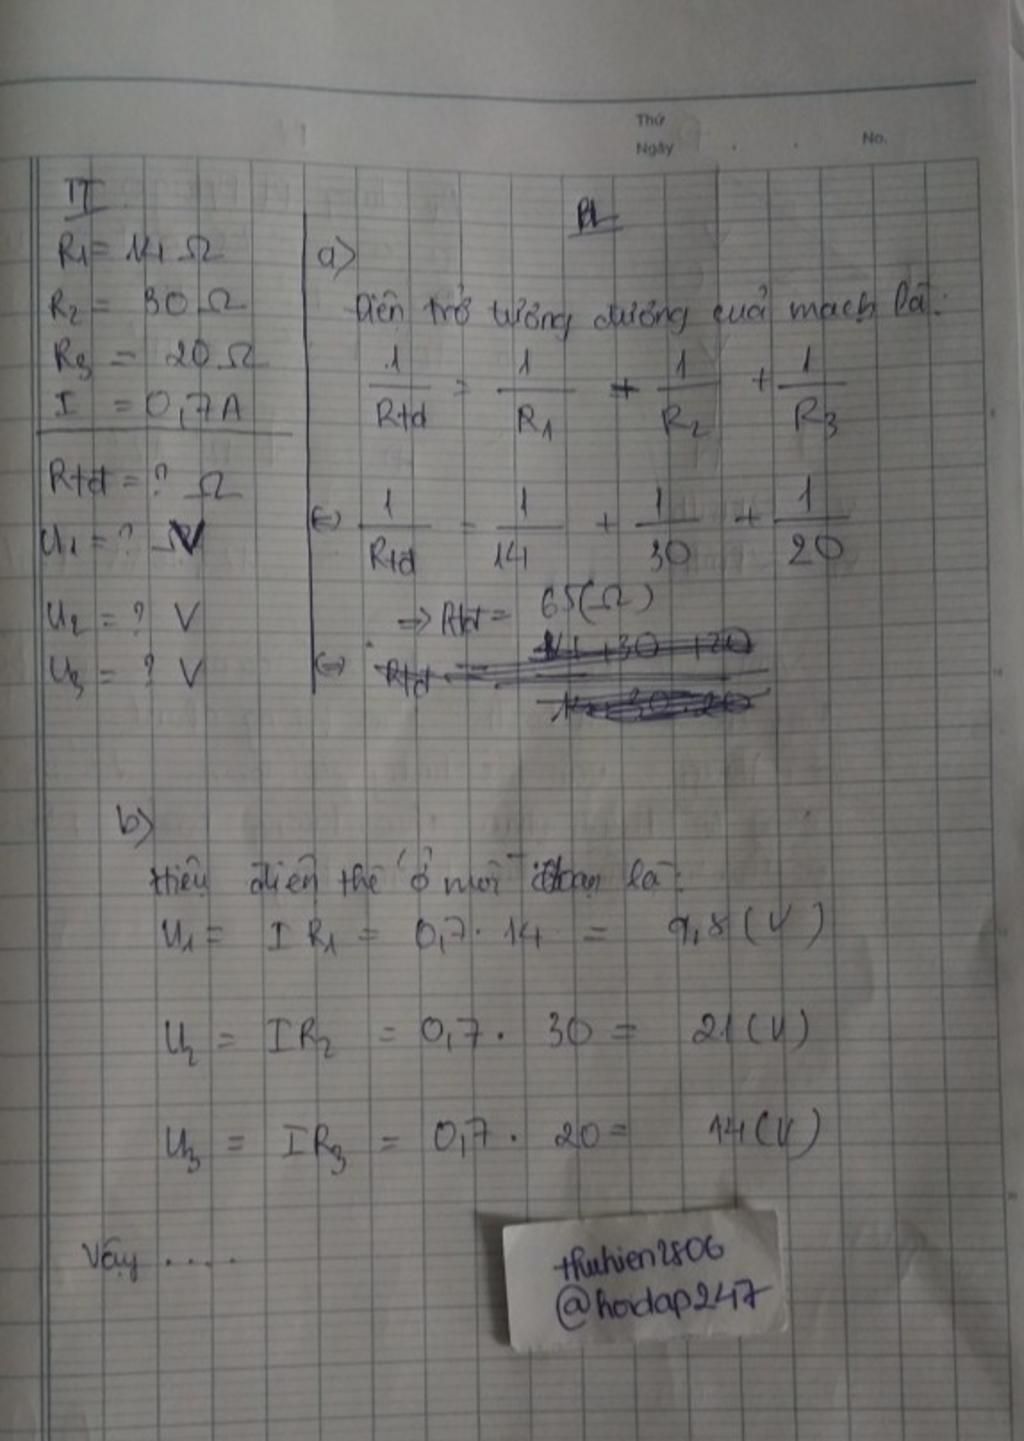 Thứ
Ngày
No.
TT
R1 = 14 Ω
R2 = 30 Ω
R3 = 20 Ω
I = 0,7A
Rtđ = ? Ω
U1 = ? V
U2 = ? V
U3 = ? V
BL
a)
Điện trở tương đương cuả mạch là:
1/Rtđ = 1/R1 + 1/R2 + 1/R3
(=) 1/Rtđ = 1/14 + 1/30 + 1/20
=> Rtđ = 65(Ω)
(=) Rtđ = 14+30+20
b)
Hiệu điện thế ở mỗi đoạn là:
U1 = I R1 = 0,7. 14 = 9,8 (V)
U2 = IR2 = 0,7. 30 = 21(V)
U3 = IR3 = 0,7. 20 = 14(V)
Vậy .....
thuhien2806
@hoidap247